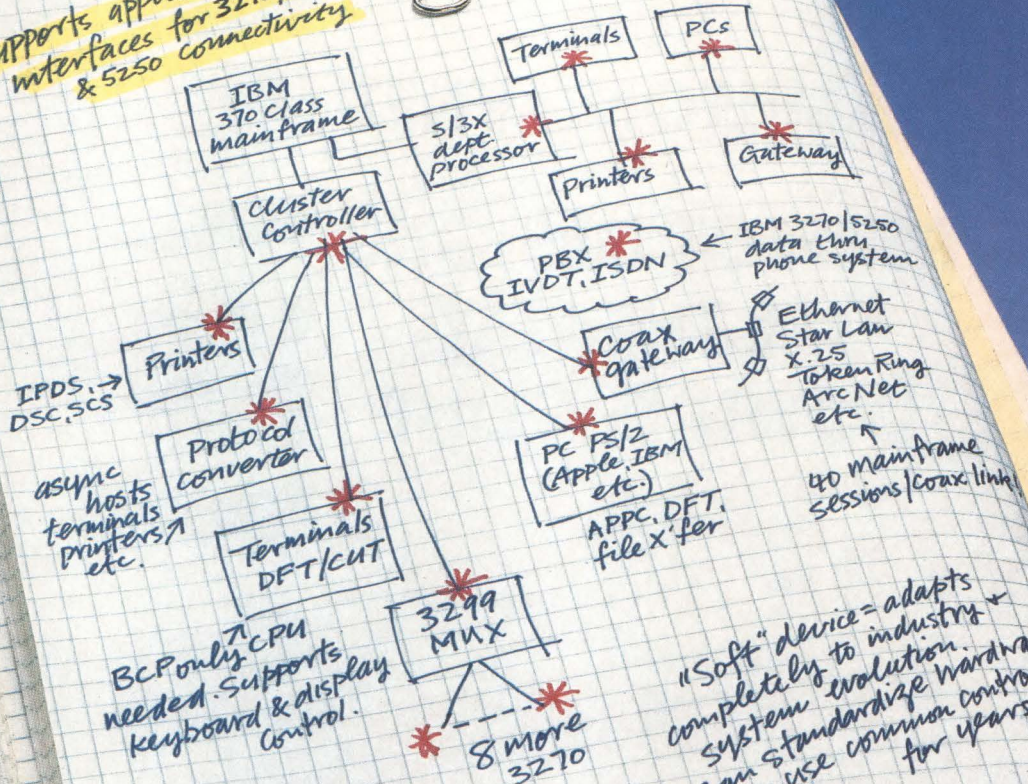 upports app
interfaces for 327
& 5250 connectivity
IBM
370 class
mainframe
S/3X
dept.
processor
Terminals
PCs
Printers
Gateway
Cluster
Controller
PBX
IVDT, ISDN
IBM 3270/5250
data thru
phone system
Coax
gateway
Ethernet
Star Lan
X.25
Token Ring
ArcNet
etc.
40 mainframe
sessions/coax link
Printers
IPDS,
DSC, SCS
Protocol
Converter
async
hosts
terminals
printers
etc.
Terminals
DFT/CUT
BCP only CPU
needed. Supports
keyboard & display
control.
3299
MUX
8 more
3270
PC PS/2
(Apple, IBM
etc.)
APPC, DFT,
file X'fer
"Soft" device = adapts
completely to industry &
system evolution.
standardize hardwa
use common contro
for years